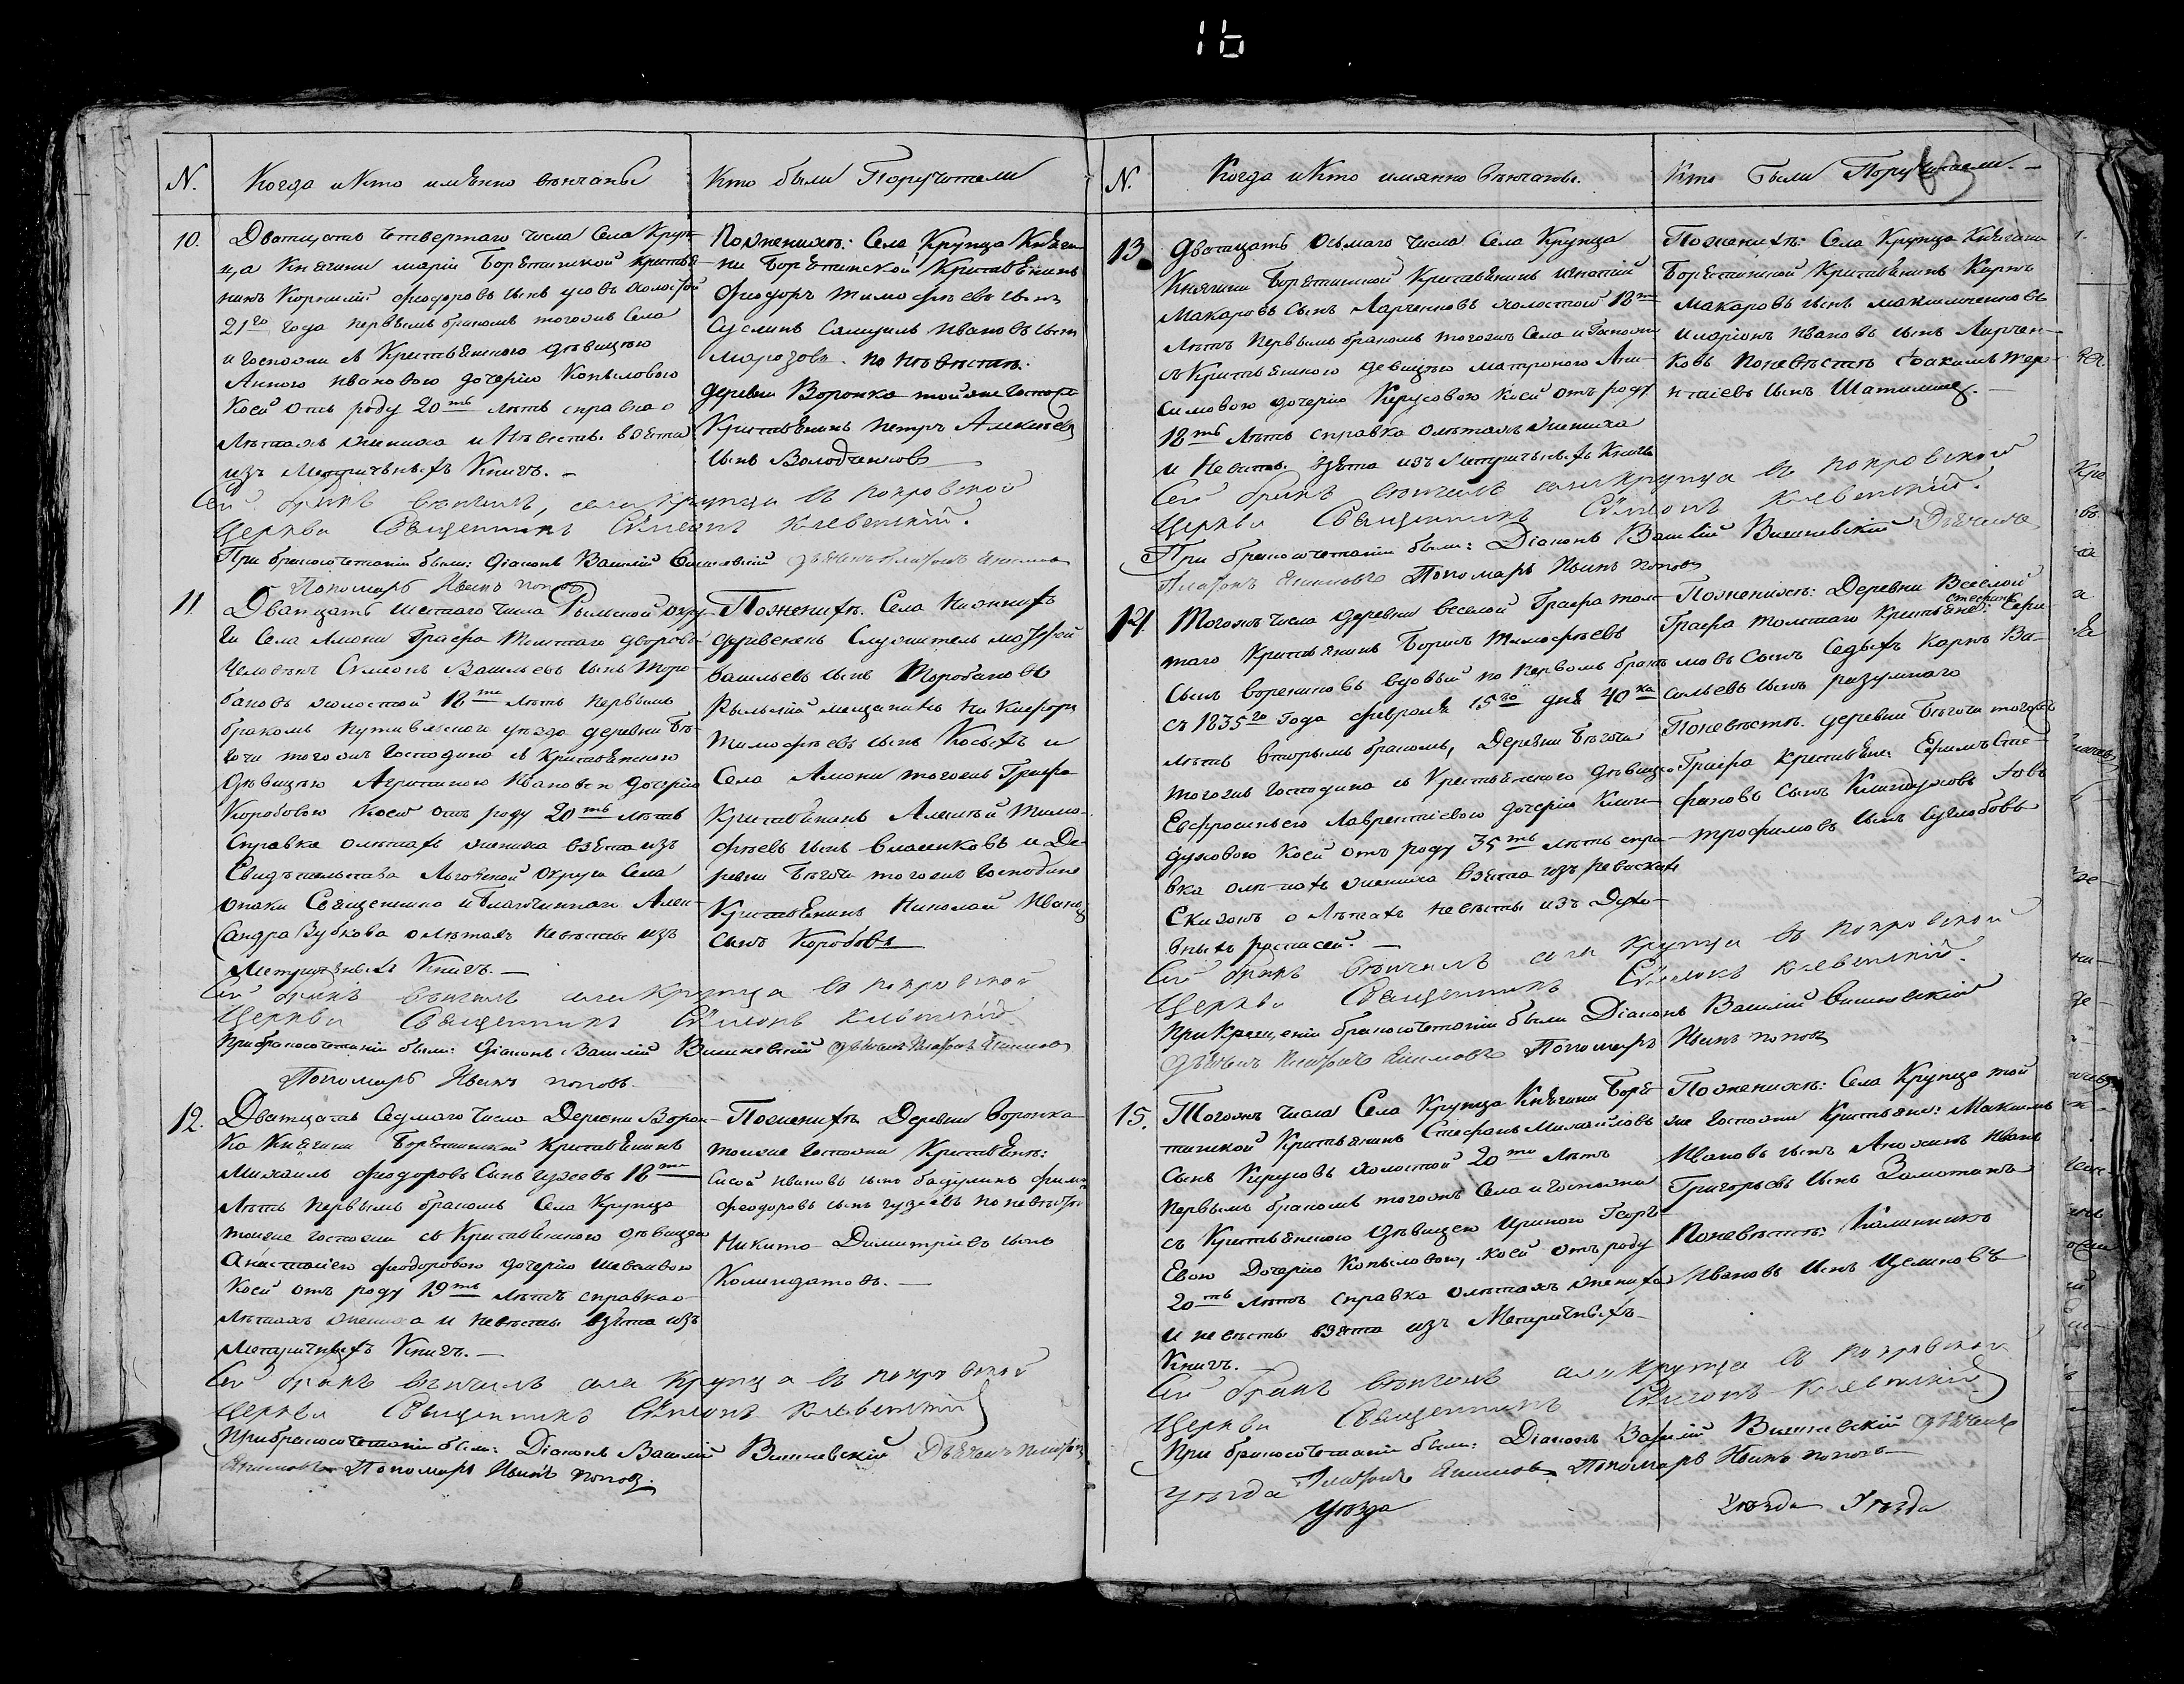 16
N.
Когда и Кто имѣнно венчаны
Кто были Поручители
10.
Дватцать четвертаго числа Села Круп
ца Княгини Маріи Борятинской Крестья
нинъ Корнилій Феодоровъ сынъ холостой
21го года первымъ бракомъ тогожъ Села
и Госпожи съ Крестьянскою дѣвицею
Анною Ивановою дочерію Копыловою
Коей отъ роду 20ть лѣтъ справка о
Лѣтахъ жениха и Невѣсты взята
изъ Метричныхъ Книгъ.
Сей бракъ венчалъ, села Крупца въ покровской
Церкви Священникъ Симеонъ Клевенский.
При бракосочетаніи были: Діаконъ Василій Вишневскій
Пономарь Иванъ Поповъ
По женихѣ: Села Крупца Княги
ни Борятинской Крестьянинъ
Феодоръ Тимофѣевъ сынъ
Суслинъ Самуилъ Ивановъ сынъ
Морозовъ. По Невѣстѣ:
деревни Воронка той же Госпожи
Крестьянинъ Петръ Алексѣевъ
сынъ Володченковъ
11.
Дватцать шестаго числа Рыльской окру
ги Села Амони Графа Толстаго дворовый
Человѣкъ Симеонъ Васильевъ сынъ Торо
бановъ холостой 18ти лѣтъ первымъ
бракомъ Путивльскаго уѣзда деревни Бѣ
гочи тогожъ Господина съ Крестьянскою
Дѣвицею Агрипиною Ивановою дочерію
Коробовою Коей отъ роду 20ть лѣтъ
Справка о лѣтахъ жениха взята изъ
Свидѣтельства Льговской Округи Села
Священника и Благочиннаго Алек
сандра Зубкова о лѣтахъ Невѣсты изъ
Метричныхъ Книгъ.
Сей бракъ венчалъ села Крупца въ покровской
Церкви Священникъ Симеонъ Клевенский
При бракосочетаніи были: Діаконъ Василій Вишневскій
Пономарь Иванъ Поповъ
По женихѣ. Села Нижнихъ
Деревенекъ Служитель
Васильевъ сынъ Торобановъ
Рыльскій мещанинъ Никифоръ
Тимофѣевъ сынъ Косыхъ и
Села Амони тогожъ Графа
Крестьянинъ Алексѣй Тимо
фѣевъ сынъ Власенковъ и Де
ревни Бѣгочи тогожъ Господина
Крестьянинъ Николай Ивановъ
сынъ Коробовъ
12.
Дватцать Седмаго Числа Деревни Ворон
ка Княгини Борятинской Крестьянинъ
Михаилъ Феодоровъ Сынъ Гузеевъ 18ти
лѣтъ Первымъ бракомъ Села Крупца
тойже Госпожи съ Крестьянскою дѣвицею
Анастасіею Феодоровою дочерію
Коей отъ роду 19ть лѣтъ справка о
лѣтахъ жениха и невѣсты взята изъ
Метричныхъ Книгъ.
Сей бракъ венчалъ села Крупца въ покровской
Церкви Священникъ Симеонъ Клевенский
При бракосочетаніи были: Діаконъ Василій Вишневскій
Пономарь Иванъ Поповъ.
По женихѣ Деревни Воронка
тойже Госпожи Крестьяне:
Сисой Ивановъ сынъ
Феодоровъ сынъ Гузеевъ по невѣстѣ
Никита Димитріевъ сынъ
N.
Когда и Кто имянно Венчаны.
Кто Были Поручители.
13.
Дватцать Осьмаго числа Села Крупца
Княгини Борятинской Крестьянинъ Игнатій
Макаровъ Сынъ Ларченковъ холостой 18ти
лѣтъ Первымъ бракомъ тогожъ Села и Госпожи
съ Крестьянскою девицею Матроною Ани
симовою дочерію Керусовою коей отъ роду
18ть лѣтъ справка о лѣтахъ жениха
и Невѣсты взята изъ Метричныхъ Книгъ
Сей бракъ венчалъ села Крупца въ покровской
Церкви Священникъ Симеонъ Клевенский.
При бракосочетаніи были: Діаконъ Василій Вишневскій Дьячекъ
Платонъ Якимовъ Пономарь Иванъ Поповъ
По женихѣ: Села Крупца Княгини
Борятинской Крестьянинъ Карпъ
Макаровъ сынъ
Иларіонъ Ивановъ сынъ Ларчен
ковъ По невѣстѣ Іоакимъ Тере
нтіевъ сынъ
14.
Тогожъ числа деревни Веселой Графа Тол
стаго Крестьянинъ Борисъ Тимофѣевъ
Сынъ Ворениковъ вдовый по Первомъ бракѣ
съ 1835го года февраля 15го дня 40ка
лѣтъ вторымъ бракомъ, Деревни Бѣгочи
тогожъ Господина съ Крестьянскою дѣвицею
Евфросиніею Лаврентіевою дочерію Клин
духовою Коей отъ роду 35ть лѣтъ спра
вка о лѣтахъ жениха взята изъ ревизскихъ
Сказокъ о Лѣтахъ невѣсты изъ Духо
вныхъ росписей.
Сей бракъ венчалъ села Крупца въ покровской
Церкви Священникъ Симеонъ Клевенский.
При Крещеніи бракосочетаніи были Діаконъ Василій Вишневскій
Дьячекъ Платонъ Якимовъ Пономарь Иванъ Поповъ
По женихѣ: Деревни Веселой
Графа Толстаго Крестьяне:
мовъ Сынъ Седыхъ Карпъ Ва
сильевъ сынъ разумнаго
По невѣстѣ. деревни Бѣгочи тогожъ
Графа Крестьяне: Ефимъ Сте
фановъ Сынъ Клиндуховъ Іовъ
Трофимовъ сынъ
15.
Тогожъ числа Села Крупца Княгини Боря
тинской Крестьянинъ Стефанъ Михайловъ
Сынъ Керусовъ холостой 20ти лѣтъ
Первымъ бракомъ тогожъ Села и Госпожи
съ Крестьянскою Дѣвицею Ириною Георг
евою Дочерію Копыловою, коей отъ роду
20ть лѣтъ справка о лѣтахъ жениха
и невѣсты взята изъ Метричныхъ
Книгъ.
Сей бракъ венчалъ села Крупца въ покровской
Церкви Священникъ Симеонъ Клевенский
При бракосочетаніи были: Діаконъ Василій Вишневскій Дьячекъ
Платонъ Якимовъ Пономарь Иванъ Поповъ
По женихѣ: Села Крупца той
же Госпожи Крестьяне: Максимъ
Ивановъ сынъ Анохинъ Иванъ
Григорьевъ сынъ
По невѣстѣ: Калинникъ
Ивановъ сынъ
уѣзда
уѣзда
Уѣзда Уѣзда